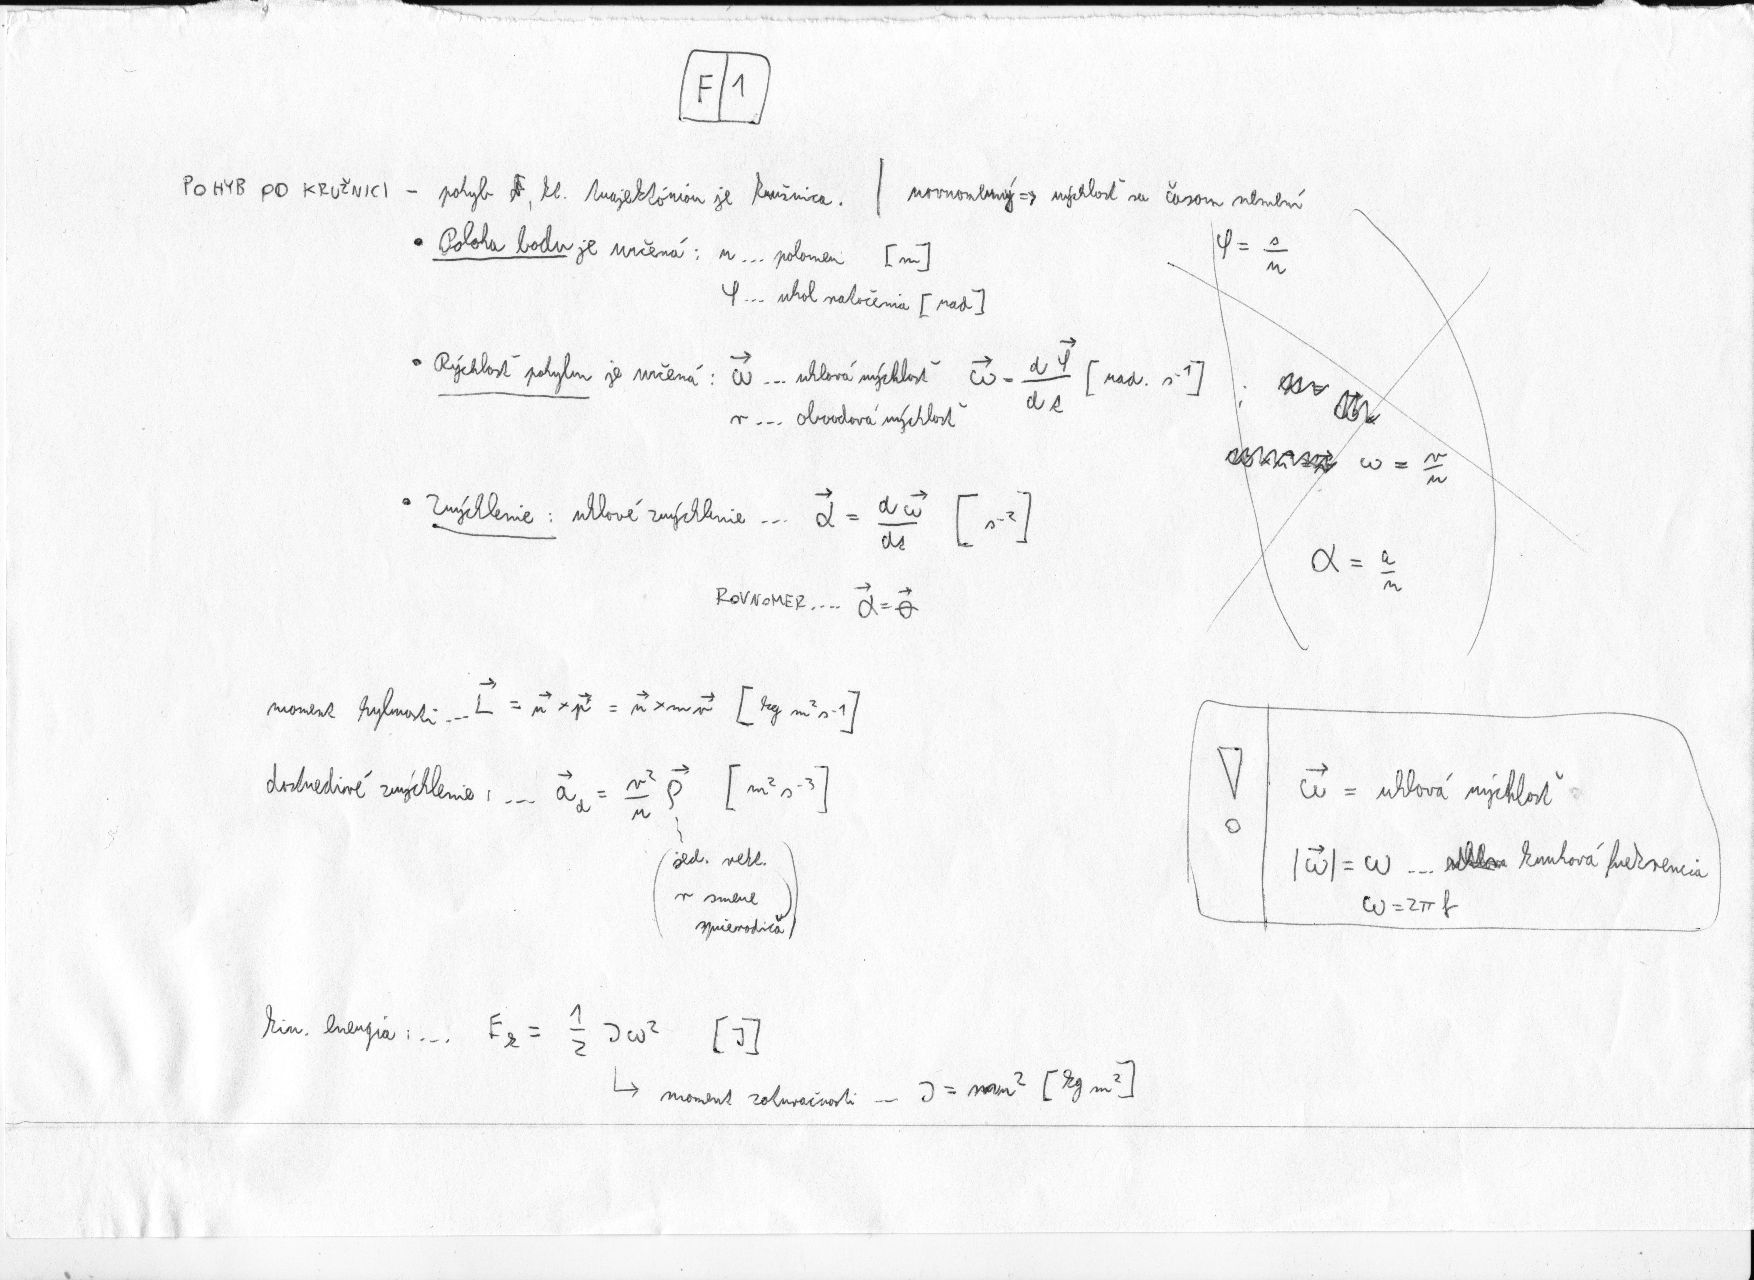 F 1
POHYB PO KRUŽNICI – pohyb, kt. trajektóriou je kružnica. | rovnomerný => rýchlosť sa časom nemení
• Poloha bodu je určená: r ... polomer [m]
φ = s/r
φ ... uhol natočenia [rad]
• Rýchlosť pohybu je určená: ω⃗ ... uhlová rýchlosť ω⃗ = dφ⃗/dt [rad. s⁻¹] ;
v ... obvodová rýchlosť
ω = v/r
• Zrýchlenie: uhlové zrýchlenie ... α⃗ = dω⃗/dt [s⁻²]
α = a/r
ROVNOMER.... α⃗ = 0⃗
moment hybnosti ... L⃗ = r⃗ × p⃗ = r⃗ × m v⃗ [kg m² s⁻¹]
dostredivé zrýchlenie: ... a⃗d = v²/r ρ⃗ [m² s⁻³]
(jed. vekt.
v smere
sprievodiča)
! ω⃗ = uhlová rýchlosť
|ω⃗| = ω ... kruhová frekvencia
ω = 2πf
kin. energia: ... Ek = 1/2 J ω² [J]
↳ moment zotrvačnosti ... J = mr² [kg m²]